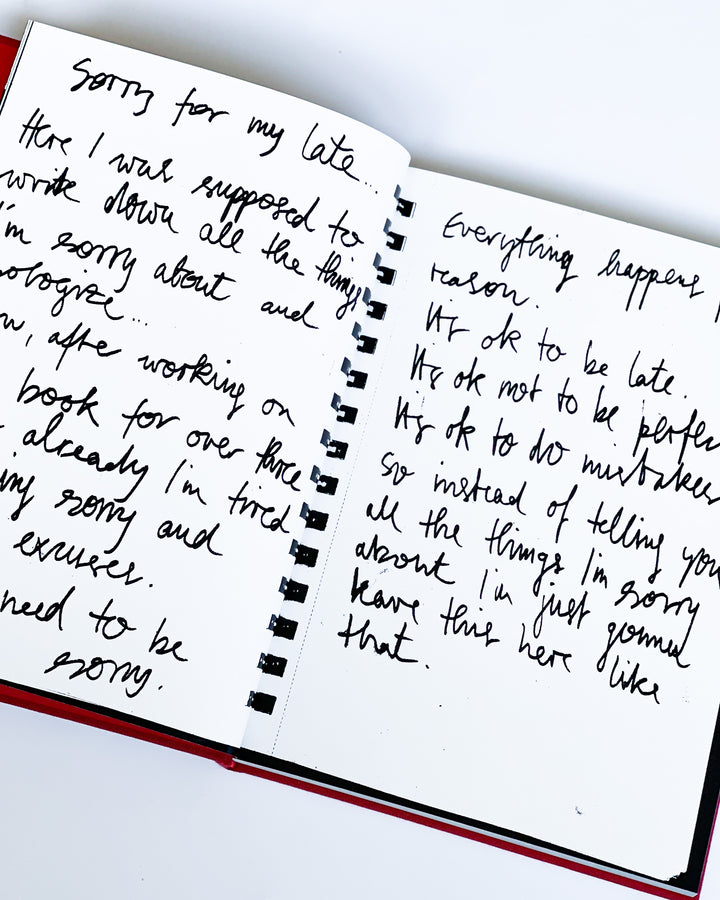 Sorry for my late...
Here I was supposed to
write down all the things
I'm sorry about and
pologize...
w, after working on
book for over three
already I'm tired
ing sorry and
excuses.
need to be
sorry.
Everything happens
reason.
It's ok to be late.
It's ok not to be perfec
It's ok to do mistakes
So instead of telling you
all the things I'm sorry
about I'm just gonna
leave this here like
that.